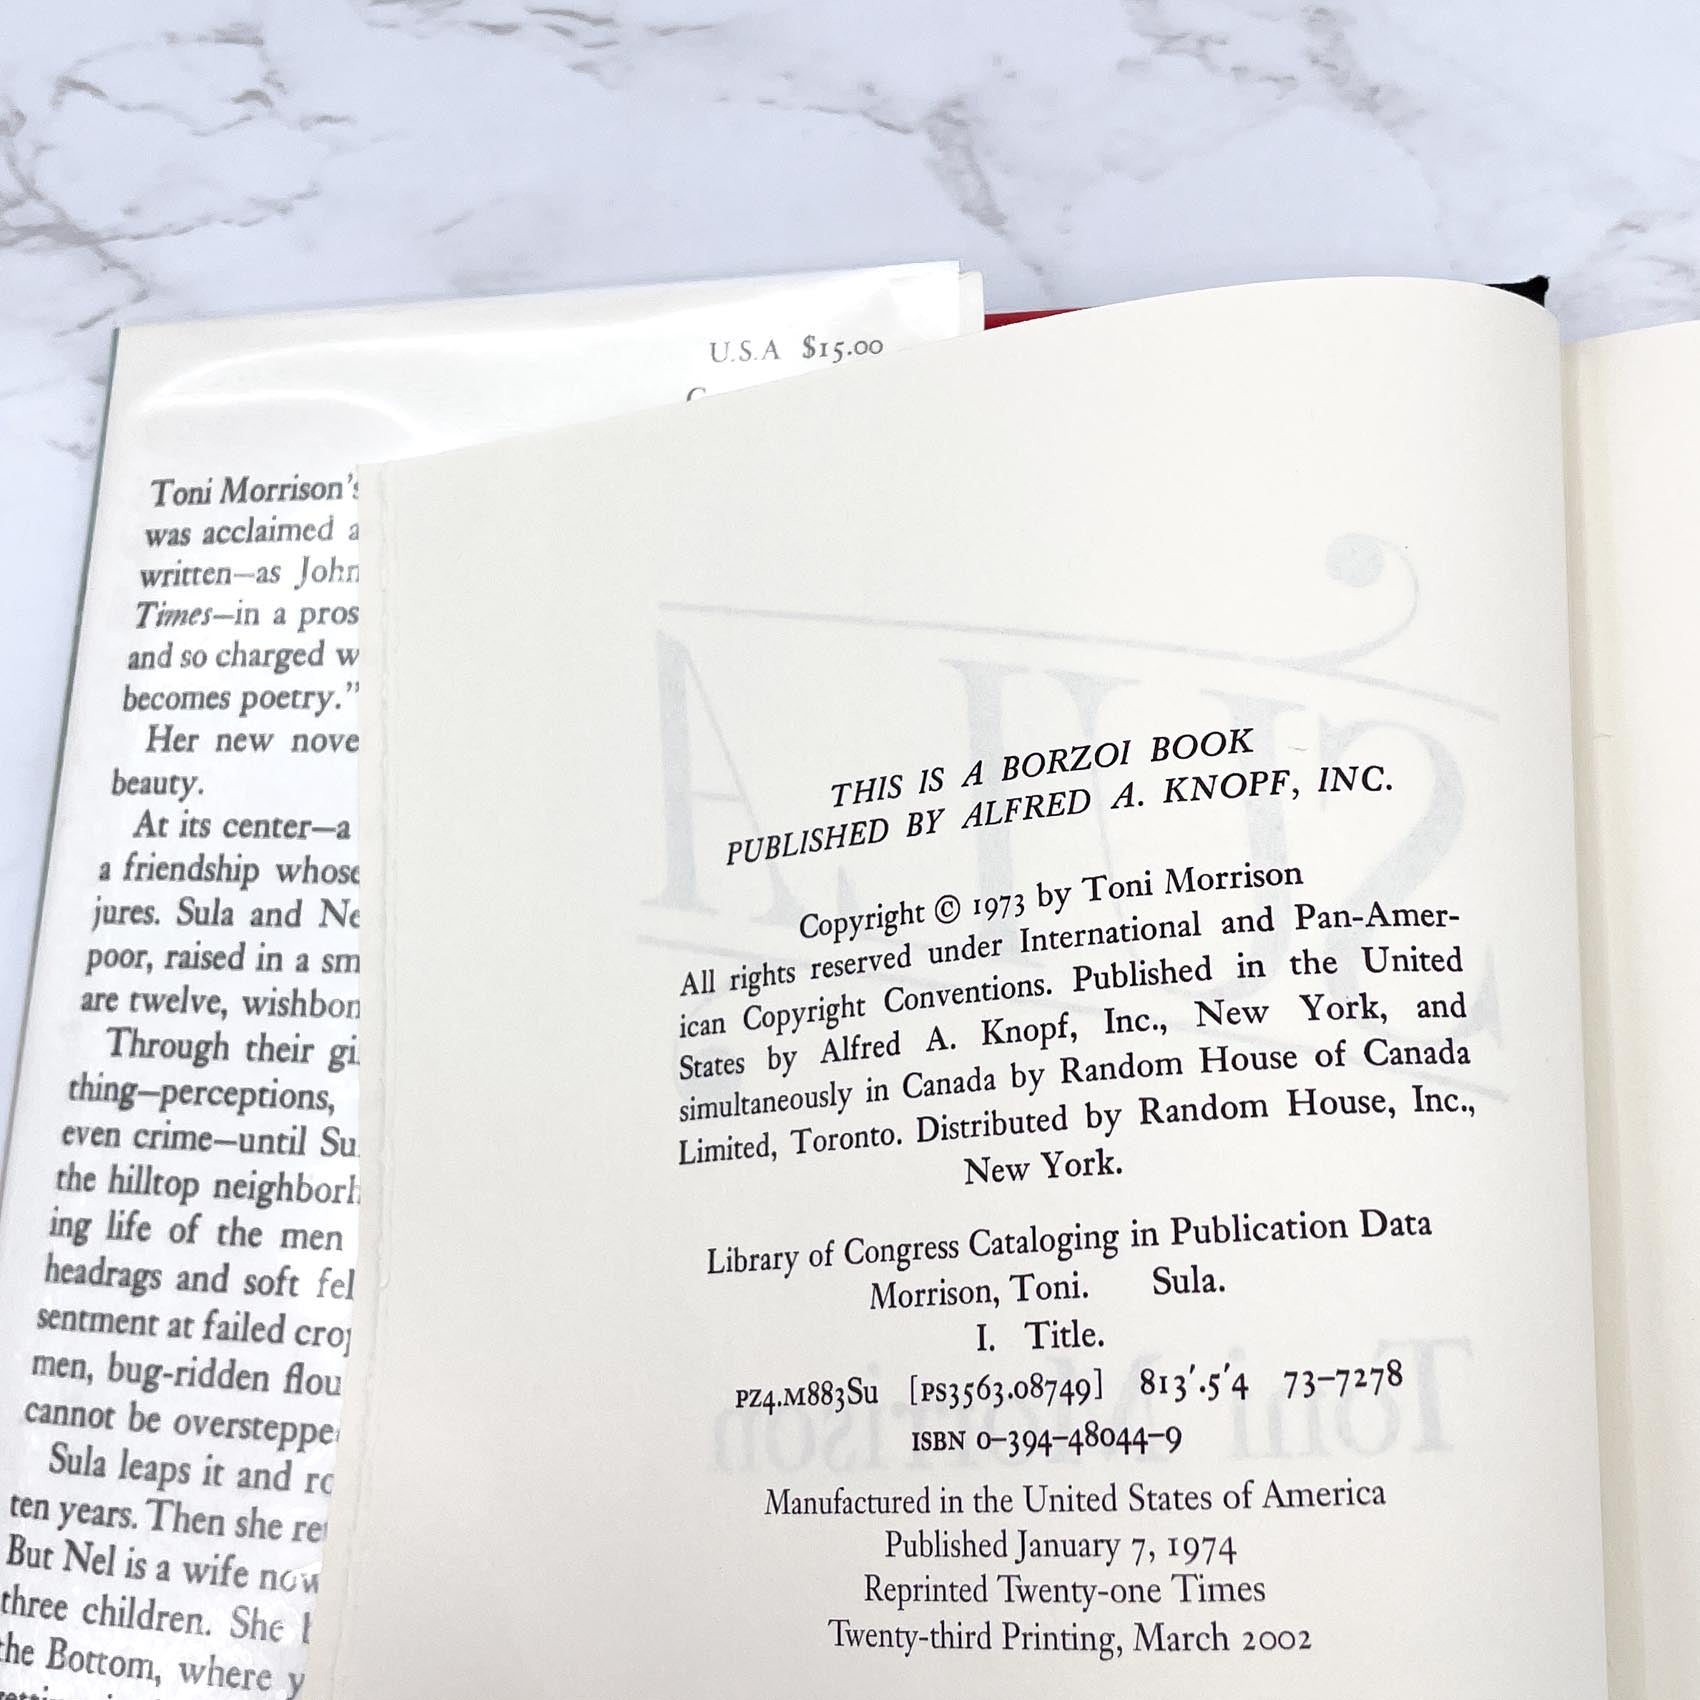 U.S.A $15.00
Toni Morrison's
was acclaimed
written—as John
Times—in a pros
and so charged w
becomes poetry."
Her new nove
beauty.
At its center—a
a friendship whose
jures. Sula and Ne
poor, raised in a sm
are twelve, wishbon
Through their gi
thing—perceptions,
even crime—until Su
the hilltop neighborh
ing life of the men
headrags and soft fel
sentment at failed crop
men, bug-ridden flou
cannot be overstepped
Sula leaps it and ro
ten years. Then she re
But Nel is a wife now
three children. She
the Bottom, where y
THIS IS A BORZOI BOOK
PUBLISHED BY ALFRED A. KNOPF, INC.
Copyright © 1973 by Toni Morrison
All rights reserved under International and Pan-Amer-
ican Copyright Conventions. Published in the United
States by Alfred A. Knopf, Inc., New York, and
simultaneously in Canada by Random House of Canada
Limited, Toronto. Distributed by Random House, Inc.,
New York.
Library of Congress Cataloging in Publication Data
Morrison, Toni. Sula.
I. Title.
PZ4.M883Su [PS3563.08749] 813'.5'4 73–7278
ISBN 0–394–48044–9
Manufactured in the United States of America
Published January 7, 1974
Reprinted Twenty-one Times
Twenty-third Printing, March 2002
SULA
Toni Morrison